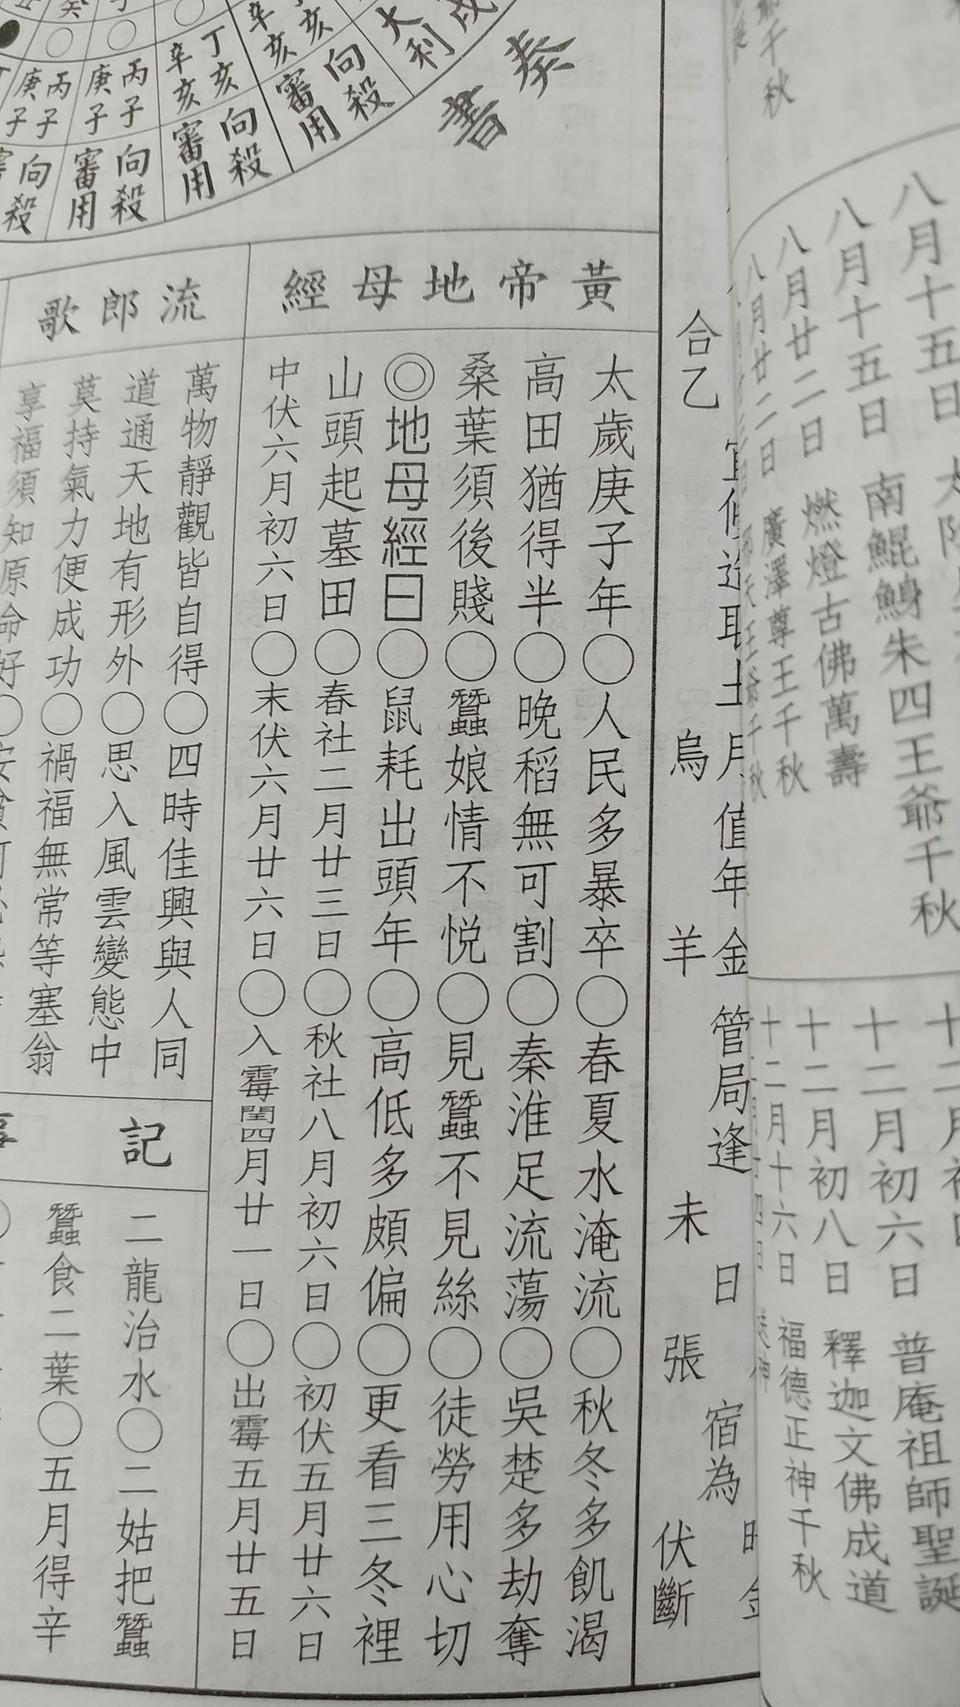 八月十五日
八月十五日 南鯤鯓朱四王爺千秋
八月廿二日 燃燈古佛萬壽
八月廿二日 廣澤尊王千秋
十二月初六日 普庵祖師聖誕
十二月初八日 釋迦文佛成道
十二月十六日 福德正神千秋
奏書
大利
向殺
審用
丁亥
辛亥
向殺
審用
丙子
庚子
向殺
審用
丙子
庚子
月值年金管局逢 日 宿為
合乙 烏 羊 未 張 伏斷
黃帝地母經
太歲庚子年○人民多暴卒○春夏水淹流○秋冬多飢渴
高田猶得半○晚稻無可割○秦淮足流蕩○吳楚多劫奪
桑葉須後賤○蠶娘情不悅○見蠶不見絲○徒勞用心切
◎地母經曰○鼠耗出頭年○高低多頗偏○更看三冬裡
山頭起墓田○春社二月廿三日○秋社八月初六日○初伏五月廿六日
中伏六月初六日○末伏六月廿六日○入霉閏四月廿一日○出霉五月廿五日
流郎歌
萬物靜觀皆自得○四時佳興與人同
道通天地有形外○思入風雲變態中
莫持氣力便成功○禍福無常等塞翁
享福須知原命好○安貧
記
二龍治水○二姑把蠶
蠶食二葉○五月得辛